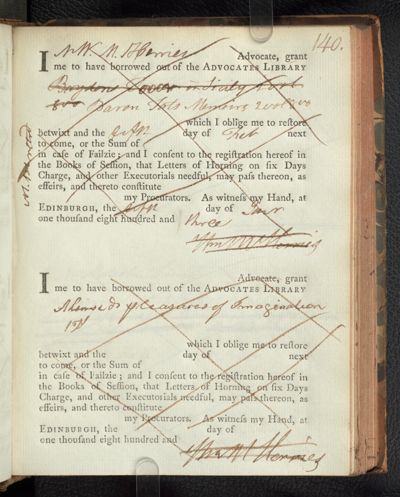 140.
I W. M. Herries Advocate, grant
me to have borrowed out of the ADVOCATES LIBRARY
8vo Baron Memoirs 2 vol 8vo
which I oblige me to restore
betwixt and the day of next
to come, or the Sum of
in case of Failzie; and I consent to the registration hereof in
the Books of Session, that Letters of Horning on six Days
Charge, and other Executorials needful, may pass thereon, as
effeirs, and thereto constitute
my Procurators. As witness my Hand, at
EDINBURGH, the day of
one thousand eight hundred and three
Herries
I Advocate, grant
me to have borrowed out of the ADVOCATES LIBRARY
Akenside's pleasures of Imagination
which I oblige me to restore
betwixt and the day of next
to come, or the Sum of
in case of Failzie; and I consent to the registration hereof in
the Books of Session, that Letters of Horning on six Days
Charge, and other Executorials needful, may pass thereon, as
effeirs, and thereto constitute
my Procurators. As witness my Hand, at
EDINBURGH, the day of
one thousand eight hundred and
Herries